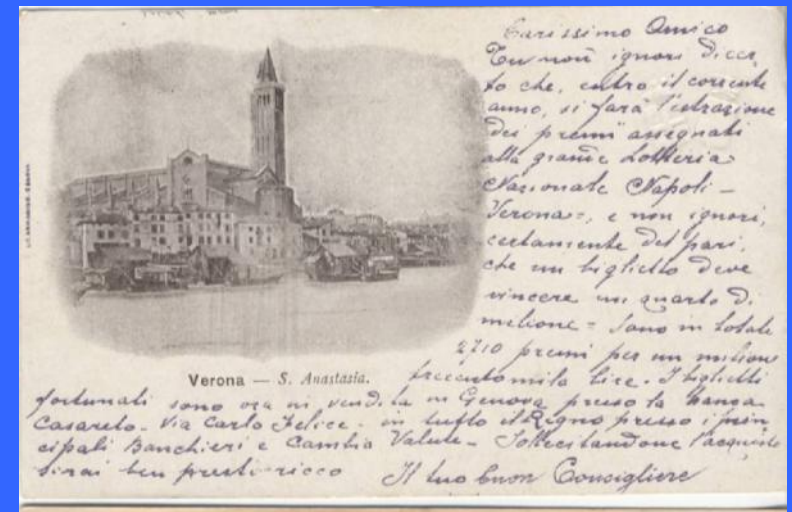 Carissimo Amico
Tu non ignori di cer
to che, entro il corrente
anno, si farà l'estrazione
dei premi assegnati
alla grande Lotteria
Nazionale Napoli -
Verona =, e non ignori,
certamente del pari,
che un biglietto deve
vincere un quarto di
milione = Sono in totale
2710 premi per un milione
Verona — S. Anastasia.
trecentomila lire. I biglietti
fortunati sono ora in vendita in Genova presso la Banca
Casareto - Via Carlo Felice - in tutto il Regno presso i prin
cipali Banchieri e Cambia Valute - Sollecitandone l'acquisto
sarai ben presto ricco Il tuo buon Consigliere